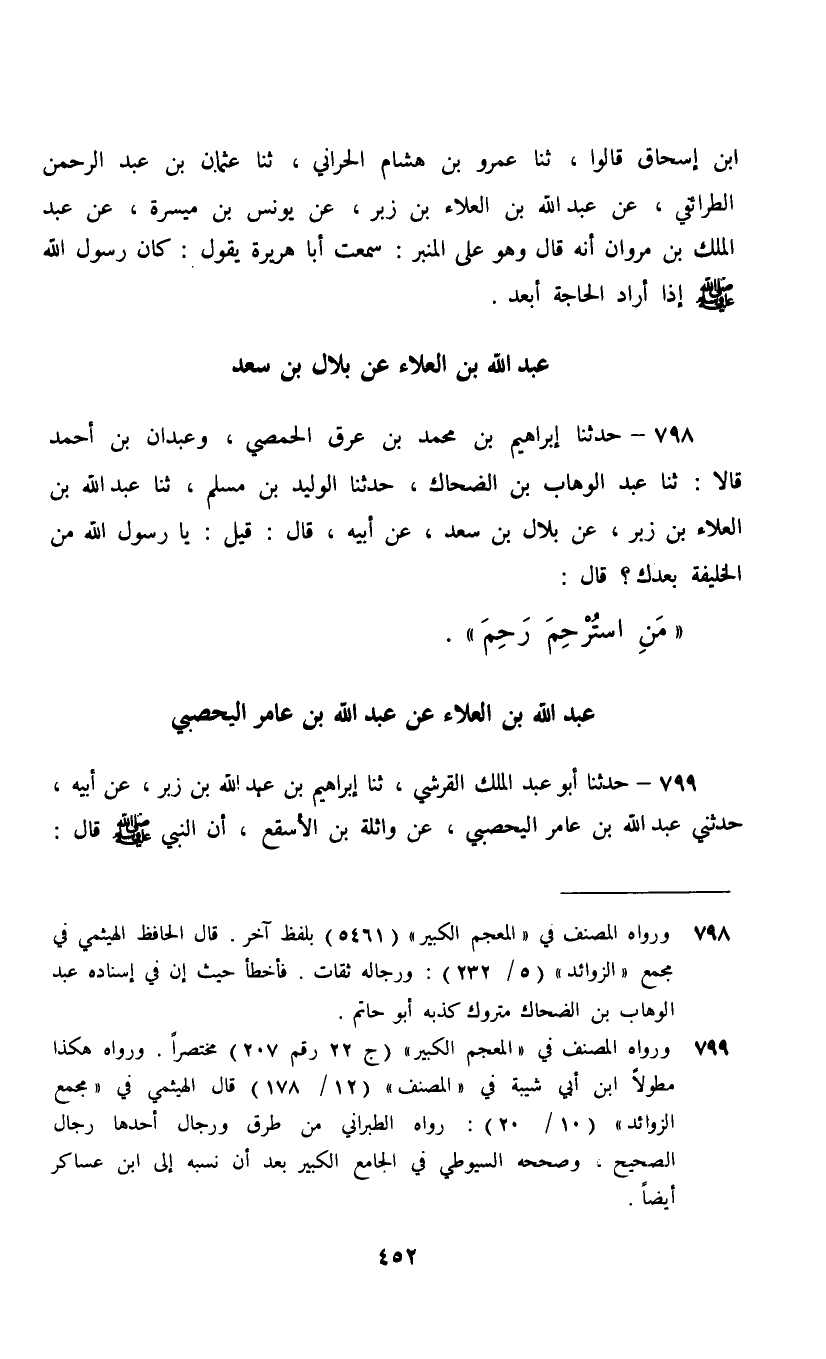 ابن إسحاق قالوا ، ثنا عمرو بن هشام الحراني ، ثنا عثمان بن عبد الرحمن
الطرائقي ، عن عبد الله بن العلاء بن زبر ، عن يونس بن ميسرة ، عن عبد
الملك بن مروان أنه قال وهو على المنبر : سمعت أبا هريرة يقول : كان رسول الله
ﷺ إذا أراد الحاجة أبعد .
عبد الله بن العلاء عن بلال بن سعد
٧٩٨ – حدثنا إبراهيم بن محمد بن عرق الحمصي ، وعبدان بن أحمد
قالا : ثنا عبد الوهاب بن الضحاك ، حدثنا الوليد بن مسلم ، ثنا عبد الله بن
العلاء بن زبر ، عن بلال بن سعد ، عن أبيه ، قال : قيل : يا رسول الله من
الخليفة بعدك ؟ قال :
« مَنِ استُرْحِمَ رَحِمَ » .
عبد الله بن العلاء عن عبد الله بن عامر اليحصبي
٧٩٩ – حدثنا أبو عبد الملك القرشي ، ثنا إبراهيم بن عبد الله بن زبر ، عن أبيه ،
حدثني عبد الله بن عامر اليحصبي ، عن واثلة بن الأسقع ، أن النبي ﷺ قال :
٧٩٨ ورواه المصنف في « المعجم الكبير » ( ٥٤٦١ ) بلفظ آخر . قال الحافظ الهيثمي في
مجمع « الزوائد » ( ٥ / ٢٣٢ ) : ورجاله ثقات . فأخطأ حيث إن في إسناده عبد
الوهاب بن الضحاك متروك كذبه أبو حاتم .
٧٩٩ ورواه المصنف في « المعجم الكبير » ( ج ٢٢ رقم ٢٠٧ ) مختصراً . ورواه هكذا
مطولاً ابن أبي شيبة في « المصنف » ( ١٢ / ١٧٨ ) قال الهيثمي في « مجمع
الزوائد » ( ١٠ / ٢٠ ) : رواه الطبراني من طرق ورجال أحدها رجال
الصحيح ، وصححه السيوطي في الجامع الكبير بعد أن نسبه إلى ابن عساكر
أيضاً .
٤٥٢